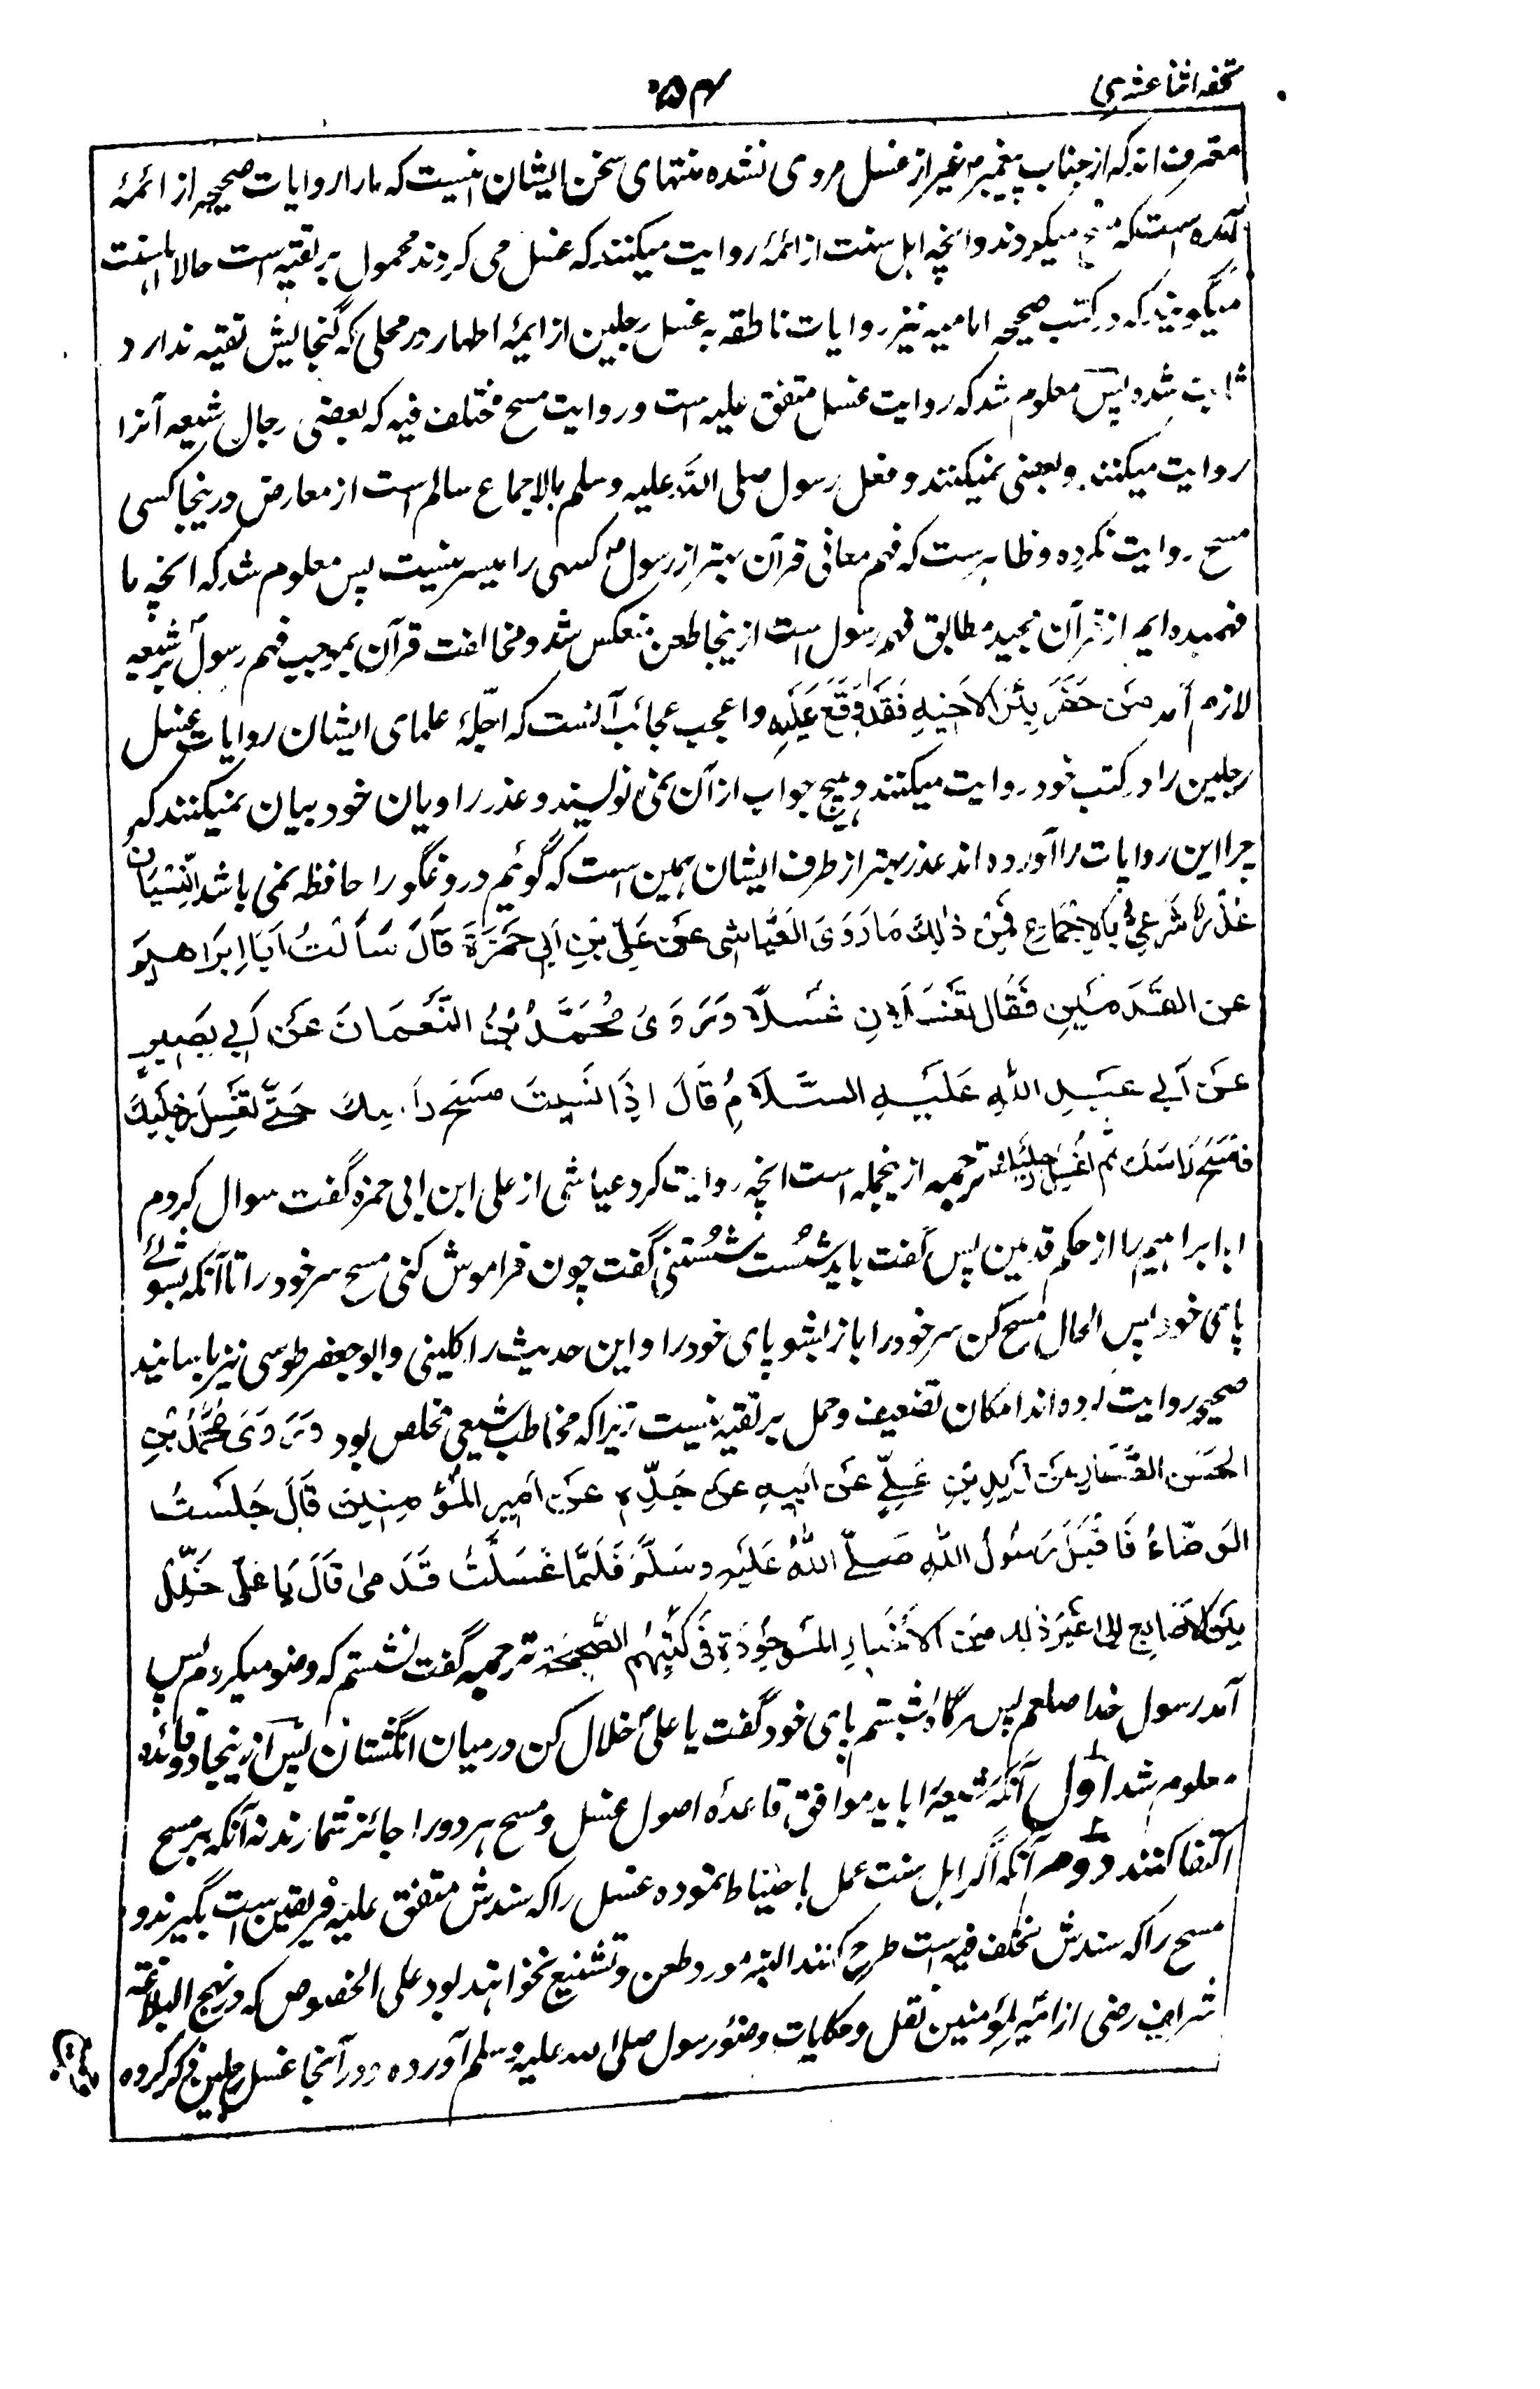 تحفه اثنا عشریه
۵۴
معترف اند که از جناب پیغمبر غیر از غسل مروی نشده منتهای سخن ایشان اینست که ما را روایات صحیحه از ائمهٔ
آمده است که مسح میکردند و انچه اهل سنت از ائمهٔ روایت میکنند که غسل می کردند محمول بر تقیه است حالا اهل سنت
میگویند که در کتب صحیحه امامیه نیز روایات ناطقه به غسل رجلین از ایمهٔ اطهار در محلی که گنجایش تقیه ندارد
ثابت شده پس معلوم شد که روایت غسل متفق علیه است و روایت مسح مختلف فیه که بعضی رجال شیعه آنرا
روایت میکنند و بعضی نمیکنند و فعل رسول صلی الله علیه وسلم بالاجماع سالم است از معارض درینجا کسی
مسح روایت نکرده و ظاهرست که فهم معانی قرآن بهتر از رسول کسی را میسر نیست پس معلوم شد که انچه ما
فهمیده ایم از قرآن مجید مطابق فهم رسول است ازینجا طعن منعکس شد و مخالفت قرآن بموجب فهم رسول بر شیعه
لازم آمد مَن حَفَرَ بِئْرَ الاَخِیهِ فَقَدْ وَقَعَ عَلَیهِ و اعجب عجائب آنست که اجلّهٔ علمای ایشان روایات غسل
رجلین را در کتب خود روایت میکنند و هیچ جواب از آن نمی نویسند و عذر راویان خود بیان نمیکنند که
چرا این روایات را آورده اند عذر بهتر از طرف ایشان همین است که گوئیم دروغگو را حافظه نمی باشد اَلنِّسْیَانُ
عُذْرٌ شَرْعِیٌّ بِالاِجْمَاعِ فَمِنْ ذٰلِكَ مَا رَوَى العَیَّاشِی عَن عَلِیِّ بْنِ اَبِی حَمْزَةَ قَالَ سَأَلْتُ اَبَا اِبْرَاهِیمَ
عن القَدَمَیْنِ فَقَالَ تَغْسَلَانِ غَسْلًا وَرَوَى مُحَمَّدُ بْنُ النُّعْمَانَ عَن اَبِی بَصِیرٍ
عَن اَبِی عَبْدِ اللهِ عَلَیْهِ السَّلَامُ قَالَ اِذَا نَسِیْتَ مَسْحَ رَأْسِكَ حَتّٰی تَغْسِلَ رِجْلَیْكَ
فَامْسَحْ رَاسَكَ ثُمَّ اغْسِلْ رِجْلَیْكَ ترجمه ازینجمله است انچه روایت کرد عیاشی از علی ابن ابی حمزه گفت سوال کردم
ابا ابراهیم را از حکم قدمین پس گفت باید شُست شُستنی گفت چون فراموش کنی مسح سر خود را تا آنکه بشوئے
پای خود پس الحال مسح کن سر خود را باز بشو پای خود را و این حدیث را کلینی و ابو جعفر طوسی نیز باسانید
صحیحه روایت کرده اند امکان تضعیف و حمل بر تقیه نیست زیرا که مخاطب شیعی مخلص بود وَرَوَى مُحَمَّدُ بْنُ
الحَسَنِ الصَّفَّارُ عَن زَیْدِ بْنِ عَلِیٍّ عَن اَبِیهِ عَن جَدِّهِ عَن اَمِیرِ المُؤْمِنِینَ قَالَ جَلَسْتُ
اَتَوَضَّاءُ فَاَقْبَلَ رَسُولُ اللهِ صَلَّی اللهُ عَلَیْهِ وَسَلَّمَ فَلَمَّا غَسَلْتُ قَدَمِی قَالَ یَا عَلِیُّ خَلِّلْ
بَیْنَ الاَصَابِعِ اِلٰی غَیْرِ ذٰلِكَ مِنَ الاَخْبَارِ المَوْجُوْدَةِ فِی کُتُبِهِمُ الصَّحِیْحَةِ ترجمه گفت نشستم که وضو میکردم پس
آمد رسول خدا صلعم پس هرگاه شستم پای خود گفت یا علی خلال کن درمیان انگشتان پس ازینجا دو فائده
معلوم شد اول آنکه شیعه را باید موافق قاعدهٔ اصول غسل و مسح هر دو را جائز شمارند نه آنکه بر مسح
اکتفا کنند دوم آنکه اگر اهل سنت عمل باحتیاط نموده غسل را که سندش متفق علیه فریقین است بگیرند و
مسح را که سندش مختلف فیه است طرح کنند البته مورد طعن و تشنیع نخواهند بود علی الخصوص که در نهج البلاغته
شریف رضی از امیر المؤمنین نقل و حکایات وضوء رسول صلی الله علیه وسلم آورده و در آنجا غسل رجلین ذکر کرده